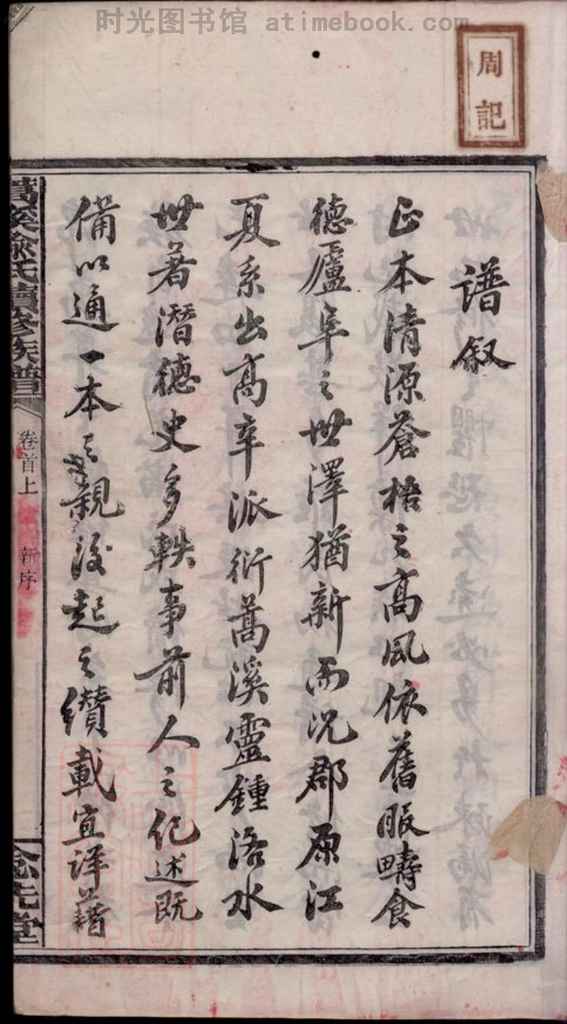 时光图书馆 atimebook.com
周記
譜叙
正本清源蒼梧之高風依舊服疇食
德廬阜之世澤猶新而况郡原江
夏系出高辛派衍蒿溪靈鍾洛水
世著潛德史多軼事前人之纪述既
備以通一本之親後起之纘載宜詳藉
氏續修族譜
卷首上
新序
堂